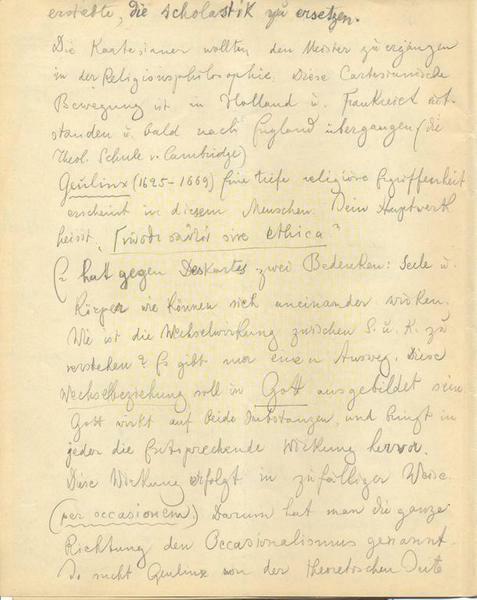 erstebte, die Scholastik zu ersetzen.
Die Kartesianer wollten den Meister zu ergänzen
in der Religionsphilosophie. Diese Cartesianische
Bewegung ist in Holland u. Frankreich ent-
standen u. bald nach England übergangen (die
Theol. Schule v. Cambridge)
Geulinx (1625-1669) Eine tiefe religiöse Ergriffenheit
erscheint in diesem Menschen. Sein Hauptwerk
heisst „Γνῶθι σαυτόν sive ethica"
Er hat gegen Deskartes zwei Bedenken: Seele u.
Körper wie können sich aneinander wirken.
Wie ist die Wechselwirkung zwischen S. u. K. zu
verstehen? Es gibt nur einen Ausweg. Diese
Wechselbeziehung soll in Gott ausgebildet sein
Gott wirkt auf beide Substanzen, und bringt in
jeder die Entsprechende Wirkung hervor.
Diese Wirkung erfolgt in zufälliger Weise.
(per occasionem) Darum hat man die ganze
Richtung den Occasionalismus genannt.
So sucht Geulinx von der theoretischen Seite